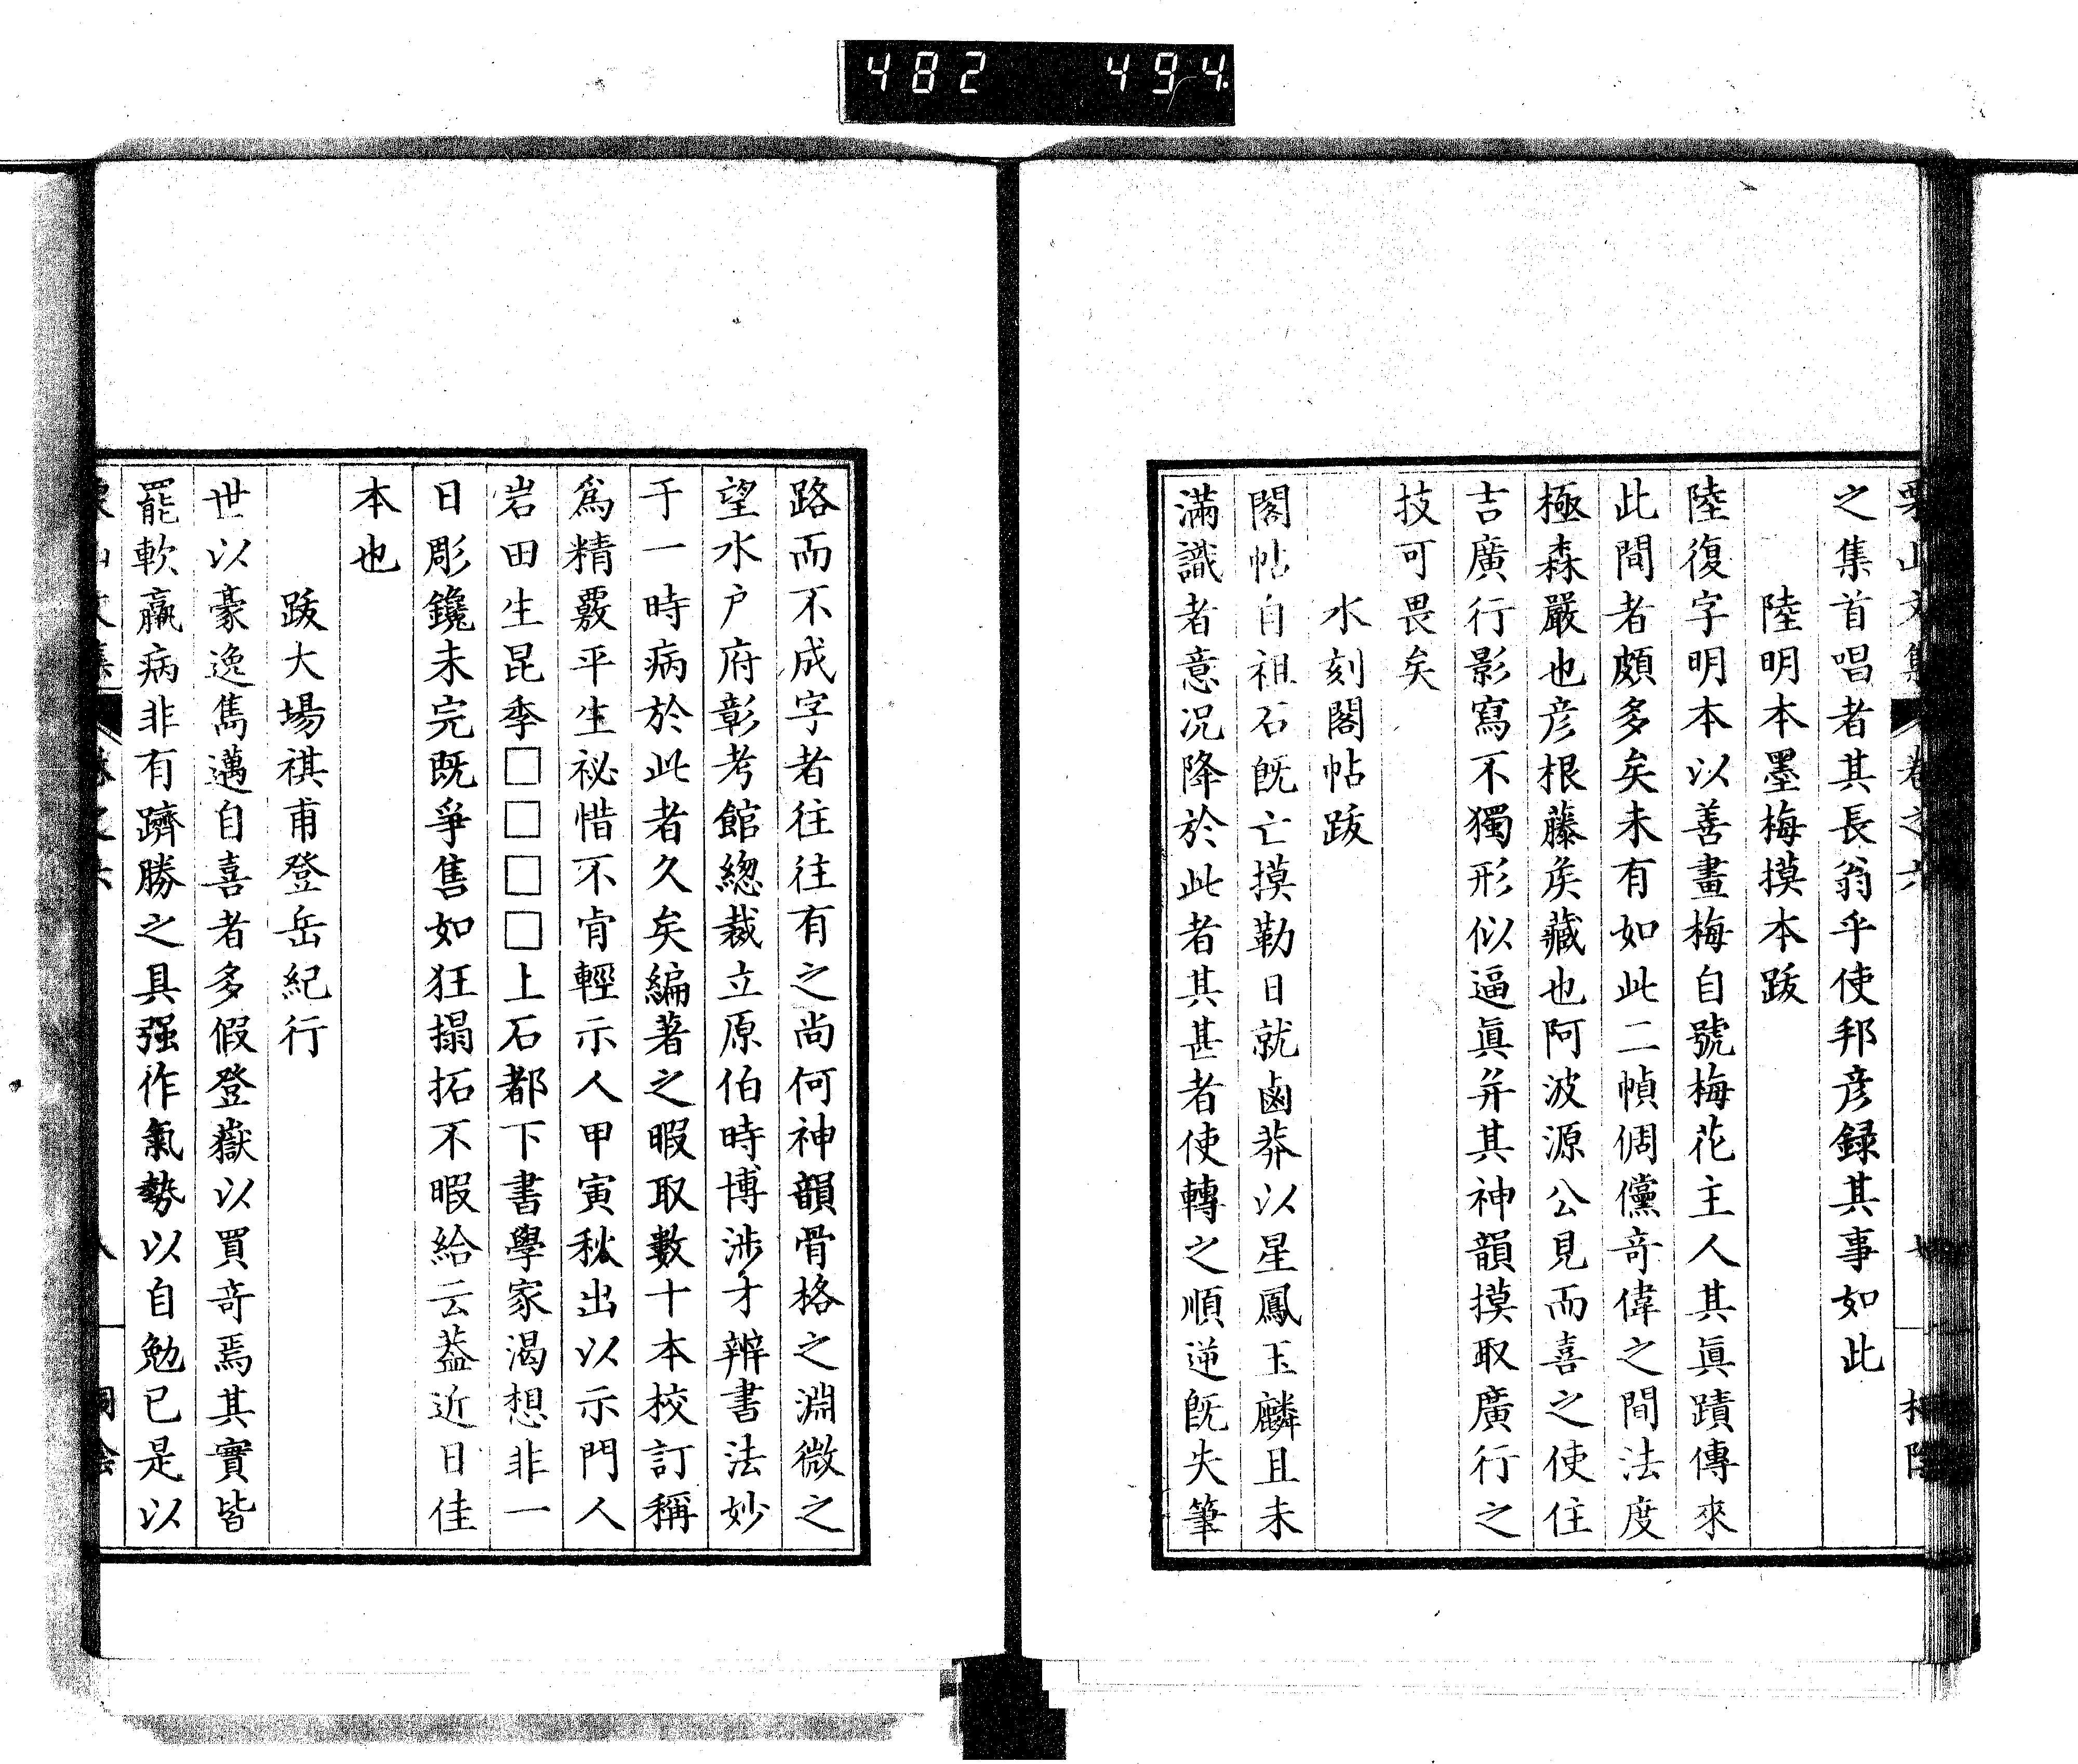 482 494
栗山文集 卷之六
之集首唱者其長翁乎使邦彥録其事如此
陸明本墨梅摸本跋
陸復字明本以善畫梅自號梅花主人其眞蹟傳來
此間者頗多矣未有如此二幀倜儻竒偉之間法度
極森嚴也彥根藤矦藏也阿波源公見而喜之使住
吉廣行影寫不獨形似逼眞并其神韻摸取廣行之
技可畏矣
水刻閣帖跋
閣帖自祖石旣亡摸勒日就鹵莽以星鳳玉麟且未
滿識者意况降於此者其甚者使轉之順逆旣失筆
路而不成字者往往有之尚何神韻骨格之淵微之
望水戶府彰考館緫裁立原伯時博涉才辨書法妙
于一時病於此者久矣編著之暇取數十本校訂稱
爲精覈平生祕惜不肯輕示人甲寅秋出以示門人
岩田生昆季□□□□上石都下書學家渴想非一
日彫鑱未完旣爭售如狂搨拓不暇給云葢近日佳
本也
跋大場祺甫登岳紀行
世以豪逸雋邁自喜者多假登嶽以買竒焉其實皆
罷軟羸病非有躋勝之具强作氣勢以自勉已是以